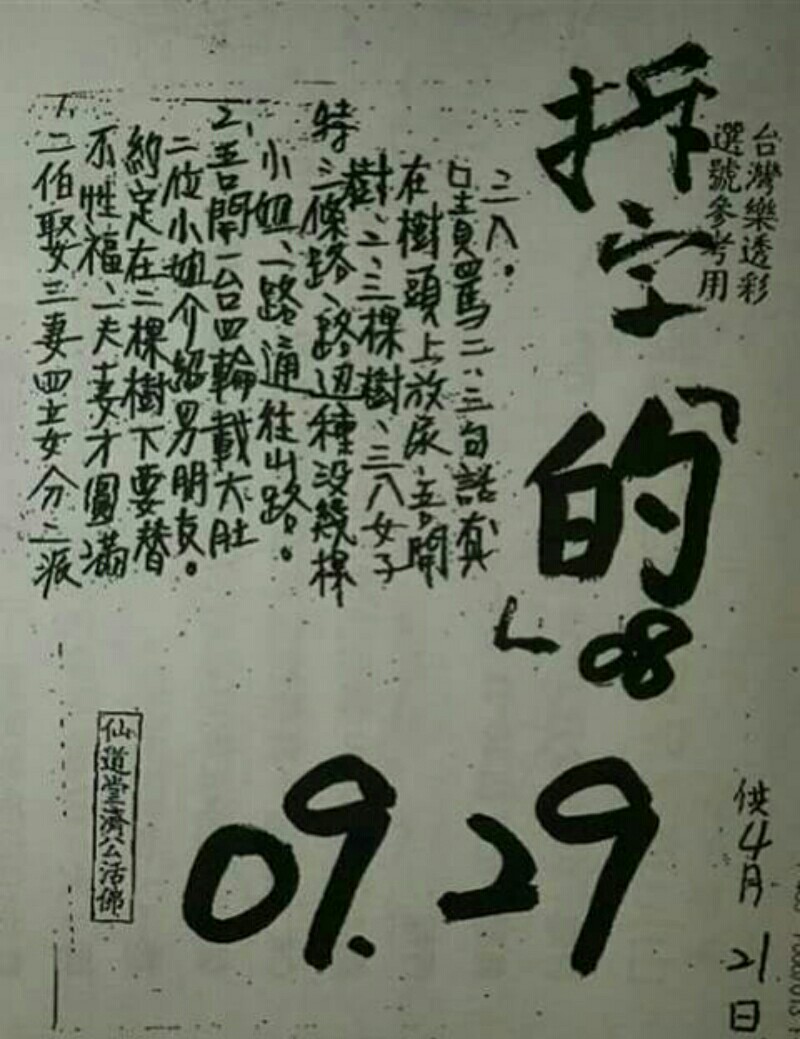 台灣樂透彩
選號參考用
拆字「的」
08
1、二伯娶三妻四妾分二派
不性福、一夫妻才圓滿
約定在二棵樹下要替
二位小姐介紹男朋友。
2、吾開一台四輪載大肚
小姐、一路通往山路。
特三條路、路边種沒幾棵
樹、二、三棵樹、三八女子
在樹頭上放尿、吾開
口責罵二、三句話真
三八。
09.29
供4月21日
仙道堂濟公活佛